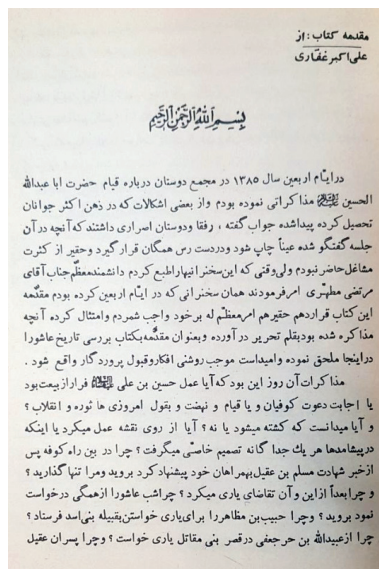 مقدمه کتاب : از
علی اکبر غفاری
بسم الله الرحمن الرحیم
در ایام اربعین سال ۱۳۸۵ در مجمع دوستان درباره قیام حضرت ابا عبدالله
الحسین علیه السلام مذاکراتی نموده بودم و از بعضی اشکالات که در ذهن اکثر جوانان
تحصیل کرده پیدا شده جواب گفته ، رفقا و دوستان اصراری داشتند که آنچه در آن
جلسه گفتگو شده عیناً چاپ شود و در دست رس همگان قرار گیرد و حقیر از کثرت
مشاغل حاضر نبودم ولی وقتی که این سخنرانیها را طبع کردم دانشمند معظم جناب آقای
مرتضی مطهری امر فرمودند همان سخنرانی که در ایام اربعین کرده بودم مقدمه
این کتاب قرار دهم حقیر هم امر معظم له بر خود واجب شمردم و امتثال کرده آنچه
مذاکره شده بود بقلم تحریر در آورده و بعنوان مقدمه بکتاب بررسی تاریخ عاشورا
در اینجا ملحق نموده و امید است موجب روشنی افکار و قبول پروردگار واقع شود .
مذاکرات آن روز این بود که آیا عمل حسین بن علی علیه السلام فرار از بیعت بود
یا اجابت دعوت کوفیان و یا قیام و نهضت و بقول امروزی ها ثوره و انقلاب ؟
و آیا میدانست که کشته میشود یا نه ؟ آیا از روی نقشه عمل میکرد یا اینکه
در پیشامدها هر یك جدا گانه تصمیم خاصی میگرفت ؟ چرا در بین راه کوفه پس
از خبر شهادت مسلم بن عقیل بهمراهان خود پیشنهاد کرد بروید و مرا تنها گذارید ؟
و چرا بعداً از این و آن تقاضای یاری میکرد ؟ چرا شب عاشورا از همگی درخواست
نمود بروید ؟ و چرا حبیب بن مظاهر را برای یاری خواستن بقبیله بنی اسد فرستاد ؟
چرا از عبیدالله بن حر جعفی در قصر بنی مقاتل یاری خواست ؟ و چرا پسران عقیل